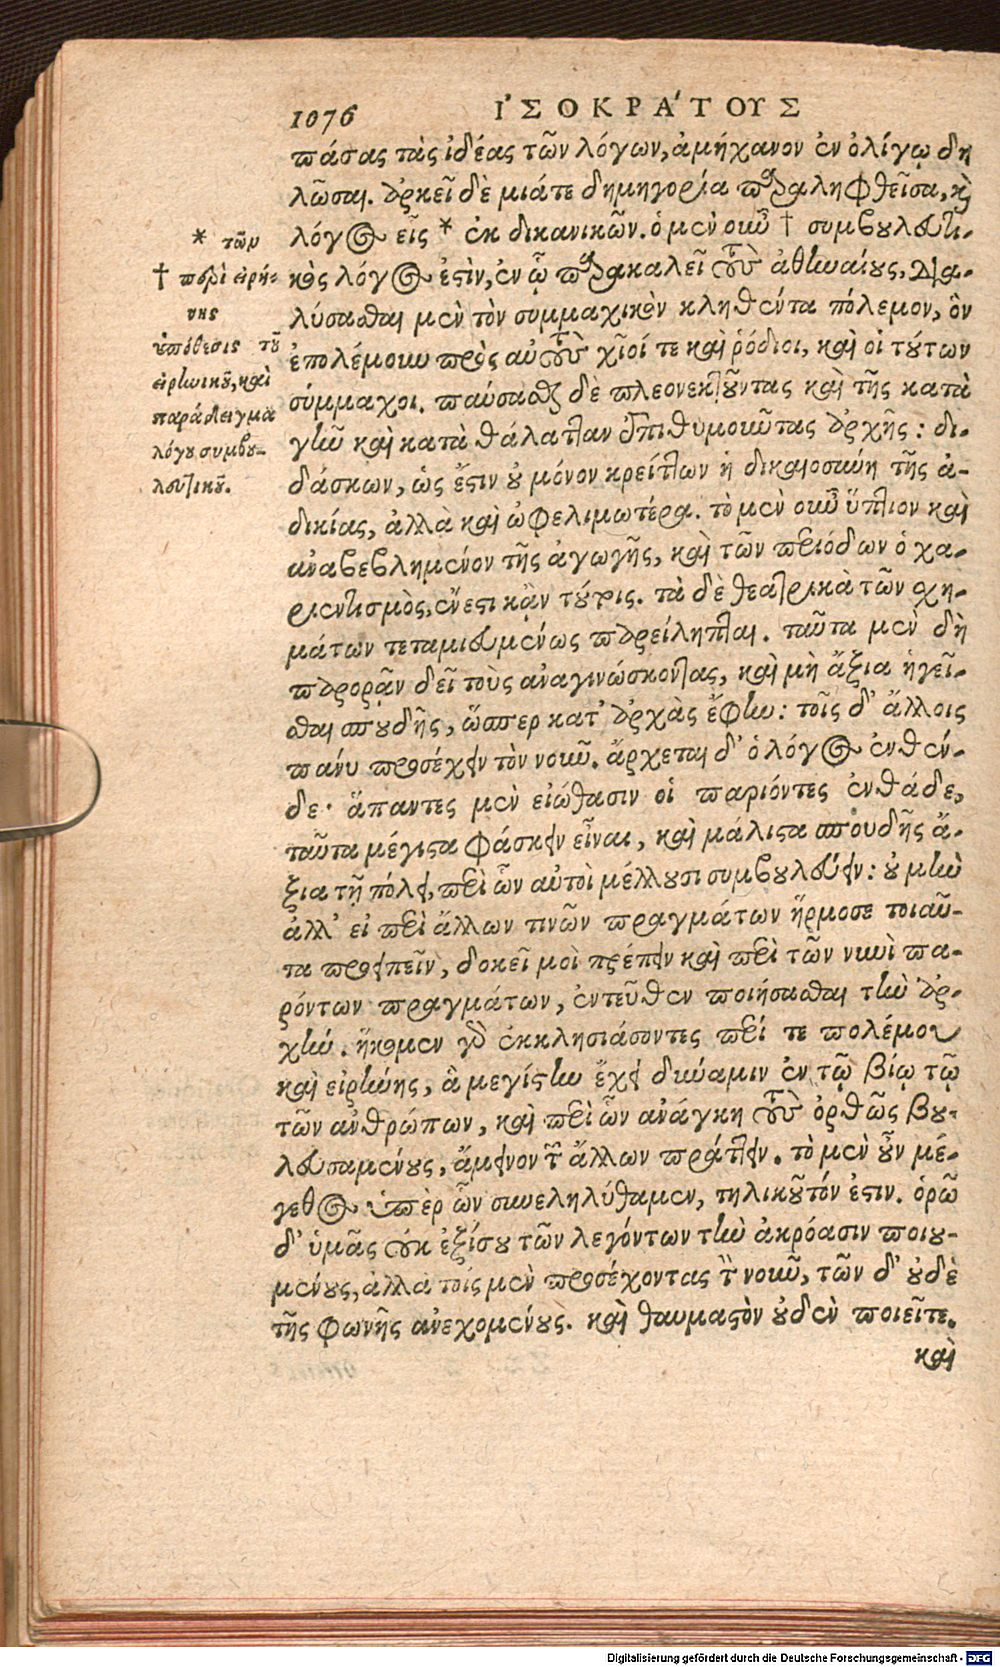 1076 ἸΣΟΚΡΆΤΟΥΣ
πάσας τὰς ἰδέας τῶν λόγων, ἀμήχανον ἐν ὀλίγῳ δη
λῶσαι. ἀρκεῖ δὲ μιάτε δημηγορία παραληφθεῖσα, καὶ
λόγος εἷς * ἐκ δικανικῶν. ὁ μὲν οὖν † συμβουλευτι-
κὸς λόγος ἐστὶν, ἐν ᾧ παρακαλεῖ τοὺς ἀθηναίους, δια-
λύσασθαι μὲν τὸν συμμαχικὸν κληθέντα πόλεμον, ὃν
ἐπολέμουν πρὸς αὐτοὺς χῖοί τε καὶ ῥόδιοι, καὶ οἱ τούτων
σύμμαχοι. παύσασθαι δὲ πλεονεκτοῦντας καὶ τῆς κατὰ
γῆν καὶ κατὰ θάλατταν ἐπιθυμοῦντας ἀρχῆς: δι-
δάσκων, ὡς ἔστιν οὐ μόνον κρείττων ἡ δικαιοσύνη τῆς ἀ-
δικίας, ἀλλὰ καὶ ὠφελιμωτέρα. τὸ μὲν οὖν ὕπτιον καὶ
ἀναβεβλημένον τῆς ἀγωγῆς, καὶ τῶν περιόδων ὁ χα-
ριεντισμὸς, ἔνεστι κᾂν τούτοις. τὰ δὲ θεατρικὰ τῶν σχη-
μάτων τεταμιευμένως παρείληπται. ταῦτα μὲν δὴ
παρορᾶν δεῖ τοὺς ἀναγινώσκοντας, καὶ μὴ ἄξια ἡγεῖ-
σθαι σπουδῆς, ὥσπερ κατ' ἀρχὰς ἔφην: τοῖς δ' ἄλλοις
πάνυ προσέχειν τὸν νοῦν. ἄρχεται δ' ὁ λόγος ἐνθέν-
δε· ἅπαντες μὲν εἰώθασιν οἱ παριόντες ἐνθάδε,
ταῦτα μέγιστα φάσκειν εἶναι, καὶ μάλιστα σπουδῆς ἄ-
ξια τῇ πόλει, περὶ ὧν αὐτοὶ μέλλουσι συμβουλεύειν: οὐ μὴν
ἀλλ' εἰ περὶ ἄλλων τινῶν πραγμάτων ἥρμοσε τοιαῦ-
τα προειπεῖν, δοκεῖ μοὶ πρέπειν καὶ περὶ τῶν νυνὶ πα-
ρόντων πραγμάτων, ἐντεῦθεν ποιήσασθαι τὴν ἀρ-
χήν. ἥκομεν γὰρ ἐκκλησιάσοντες περί τε πολέμου
καὶ εἰρήνης, ἃ μεγίστην ἔχει δύναμιν ἐν τῷ βίῳ τῷ
τῶν ἀνθρώπων, καὶ περὶ ὧν ἀνάγκη τοὺς ὀρθῶς βου-
λευσαμένους, ἄμεινον τῶν ἄλλων πράττειν. τὸ μὲν οὖν μέ-
γεθος ὑπὲρ ὧν συνεληλύθαμεν, τηλικοῦτόν ἐστιν. ὁρῶ
δ' ὑμᾶς οὐκ ἐξίσου τῶν λεγόντων τὴν ἀκρόασιν ποιου-
μένους, ἀλλὰ τοῖς μὲν προσέχοντας τὸν νοῦν, τῶν δ' οὐδὲ
τῆς φωνῆς ἀνεχομένους. καὶ θαυμαστὸν οὐδὲν ποιεῖτε.
καὶ
* τῶν
† περὶ εἰρή-
νης
ὑπόθεσις τοῦ
εἰρηνικοῦ, καὶ
παράδειγμα
λόγου συμβου-
λευτικοῦ.
Digitalisierung gefördert durch die Deutsche Forschungsgemeinschaft - DFG